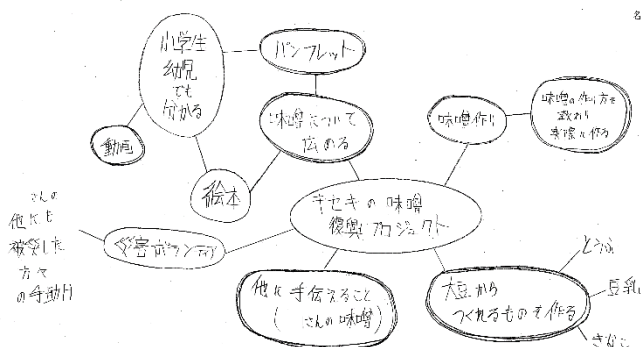 名
小学生
幼児
でも
分かる
パンフレット
動画
味噌について
広める
絵本
味噌作り
味噌の作り方を
教わり
実際に作る
キセキの味噌
復興プロジェクト
災害ボランティア
さんの
他にも
被災した
方々
の手助け
他に手伝えること
(さんの味噌)
大豆から
つくれるものを作る
とうふ
豆乳
きなこ